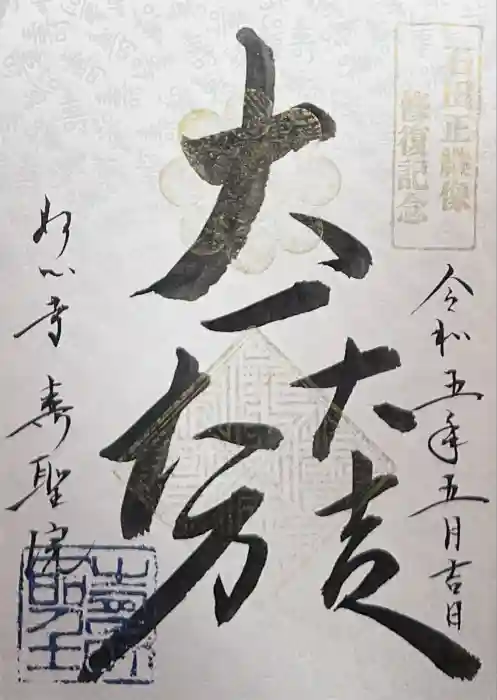 石田正継像
修復記念
令和五年五月吉日
大一大万大吉
妙心寺 寿聖院